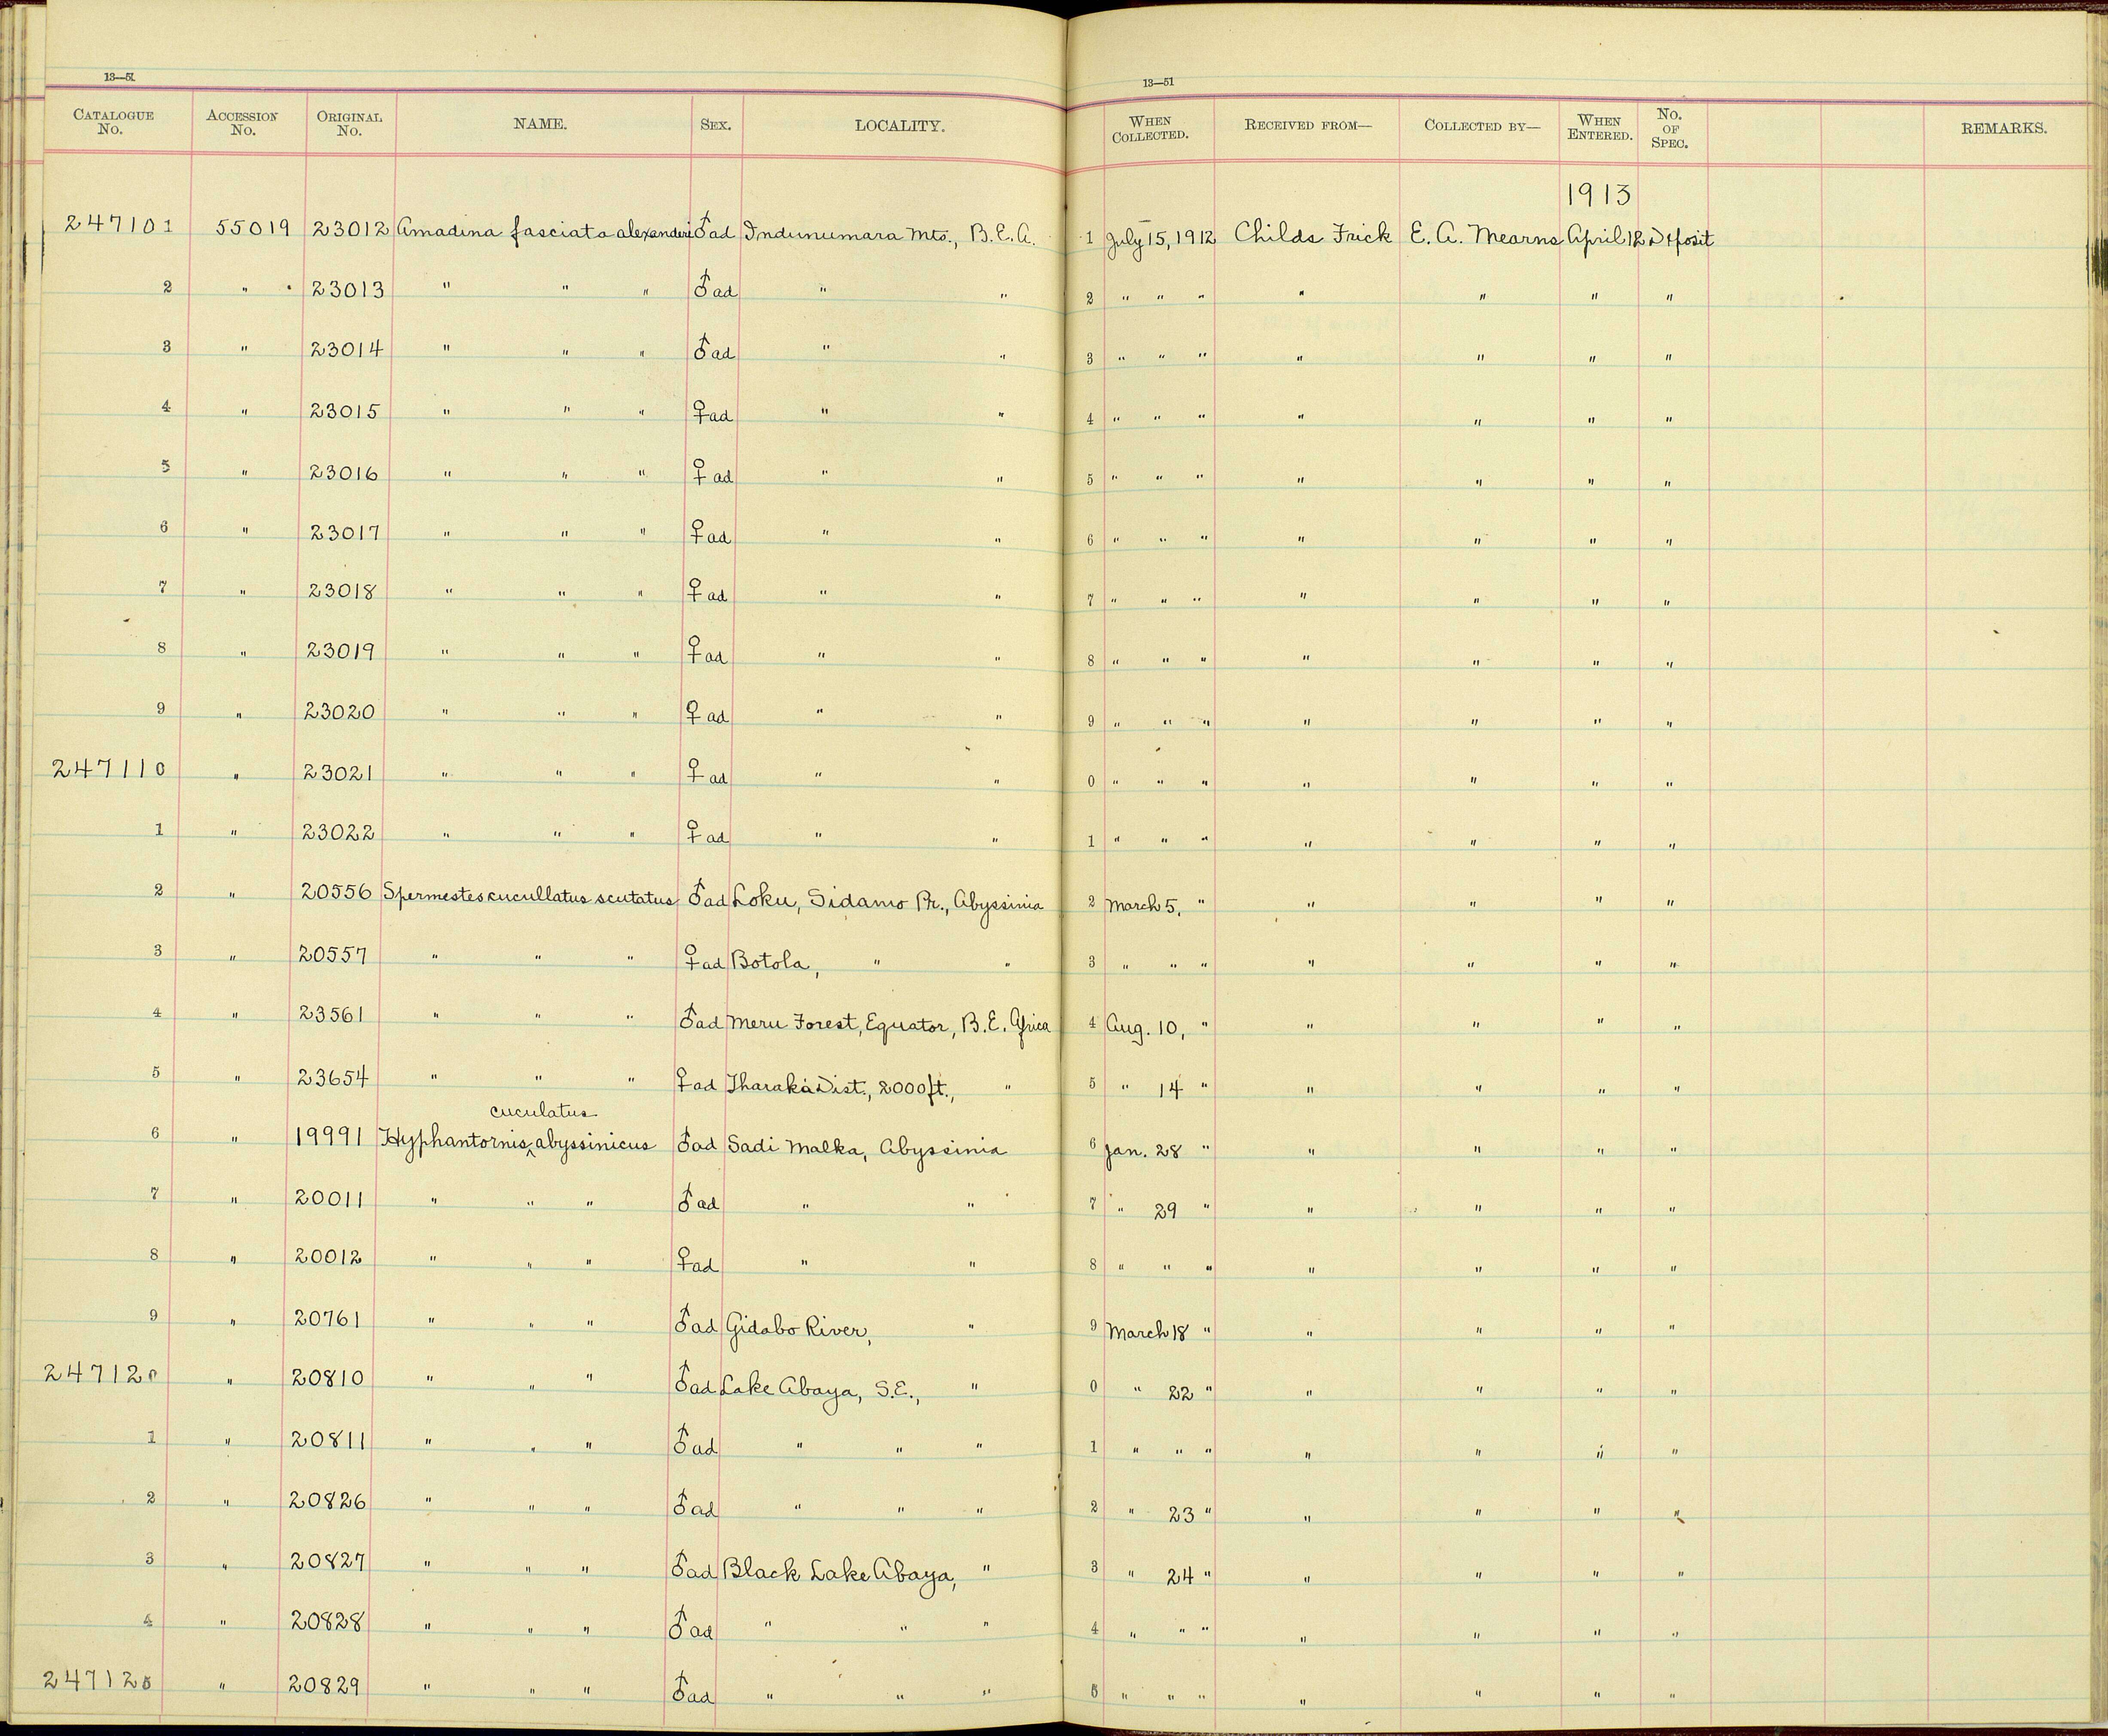 13—51 13—51
CATALOGUE No. ACCESSION No. ORIGINAL No. NAME. SEX. LOCALITY. WHEN COLLECTED. RECEIVED FROM— COLLECTED BY— WHEN ENTERED. No. OF SPEC. REMARKS.
1913
247101 55019 23012 Amadina fasciata alexanderi ♂ad Indunumara Mts., B.E.A. 1 July 15, 1912 Childs Frick E. A. Mearns April 12 Deposit
2 " 23013 " " " ♂ad " " 2 " " " " " " "
3 " 23014 " " " ♂ad " " 3 " " " " " " "
4 " 23015 " " " ♀ad " " 4 " " " " " " "
5 " 23016 " " " ♀ad " " 5 " " " " " " "
6 " 23017 " " " ♀ad " " 6 " " " " " " "
7 " 23018 " " " ♀ad " " 7 " " " " " " "
8 " 23019 " " " ♀ad " " 8 " " " " " " "
9 " 23020 " " " ♀ad " " 9 " " " " " " "
247110 " 23021 " " " ♀ad " " 0 " " " " " " "
1 " 23022 " " " ♀ad " " 1 " " " " " " "
2 " 20556 Spermestes cucullatus scutatus ♂ad Loku, Sidamo Pr., Abyssinia 2 March 5, " " " " "
3 " 20557 " " " ♀ad Botola, " " 3 " " " " " " "
4 " 23561 " " " ♂ad Meru Forest, Equator, B.E. Africa 4 Aug. 10, " " " " "
5 " 23654 " " " ♀ad Tharaka Dist., 2000 ft., " 5 " 14 " " " " "
cuculatus
6 " 19991 Hyphantornis ^ abyssinicus ♂ad Sadi Malka, Abyssinia 6 Jan. 28 " " " " "
7 " 20011 " " " ♂ad " " 7 " 29 " " " " "
8 " 20012 " " " ♀ad " " 8 " " " " " " "
9 " 20761 " " " ♂ad Gidabo River, " 9 March 18 " " " " "
247120 " 20810 " " " ♂ad Lake Abaya, S.E., " 0 " 22 " " " " "
1 " 20811 " " " ♂ad " " " 1 " " " " " " "
2 " 20826 " " " ♂ad " " " 2 " 23 " " " " "
3 " 20827 " " " ♂ad Black Lake Abaya, " 3 " 24 " " " " "
4 " 20828 " " " ♂ad " " " 4 " " " " " " "
247125 " 20829 " " " ♂ad " " " 5 " " " " " " "